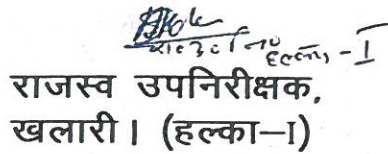 हल्का - I
राजस्व उपनिरीक्षक,
खलारी। (हल्का–I)